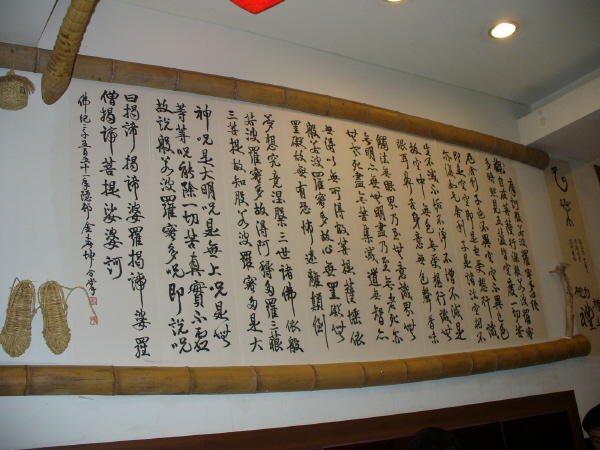 摩訶般若波羅蜜多心經
觀自在菩薩行深般若波羅蜜
多時照見五蘊皆空度一切苦
厄舍利子色不異空空不異色色
即是空空即是色受想行識
亦復如是舍利子是諸法空相不
生不滅不垢不淨不增不減是
故空中無色無受想行識無
眼耳鼻舌身意無色聲香味
觸法無眼界乃至無意識界無
無明亦無無明盡乃至無老死亦
無老死盡無苦集滅道無智亦
無得以無所得故菩提薩埵依
般若波羅蜜多故心無罣礙無
罣礙故無有恐怖遠離顛倒
夢想究竟涅槃三世諸佛依般
若波羅蜜多故得阿耨多羅三藐
三菩提故知般若波羅蜜多是大
神呪是大明呪是無上呪是無
等等呪能除一切苦真實不虛
故說般若波羅蜜多呪即說呪
曰揭諦揭諦婆羅揭諦婆羅
僧揭諦菩提娑婆訶
佛紀二千五百五十二年 合掌